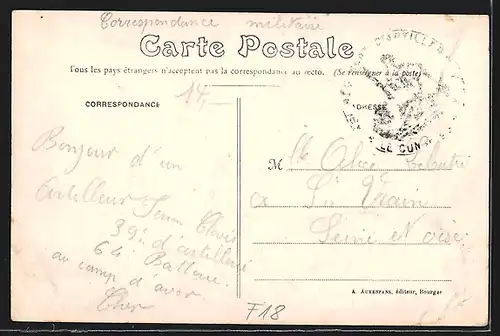 Correspondance militaire
Carte Postale
Tous les pays étrangers n'acceptent pas la correspondance au recto. (Se renseigner à la poste)
14,-
CORRESPONDANCE
ADRESSE
LE CUN
Bonjour d'un
artilleur
39e d'artillerie
64 Batterie
au camp d'avor
Cher
M lle Alice
à St Vrain
Seine et Oise
A. AUXENFANS, éditeur, Bourges
F18